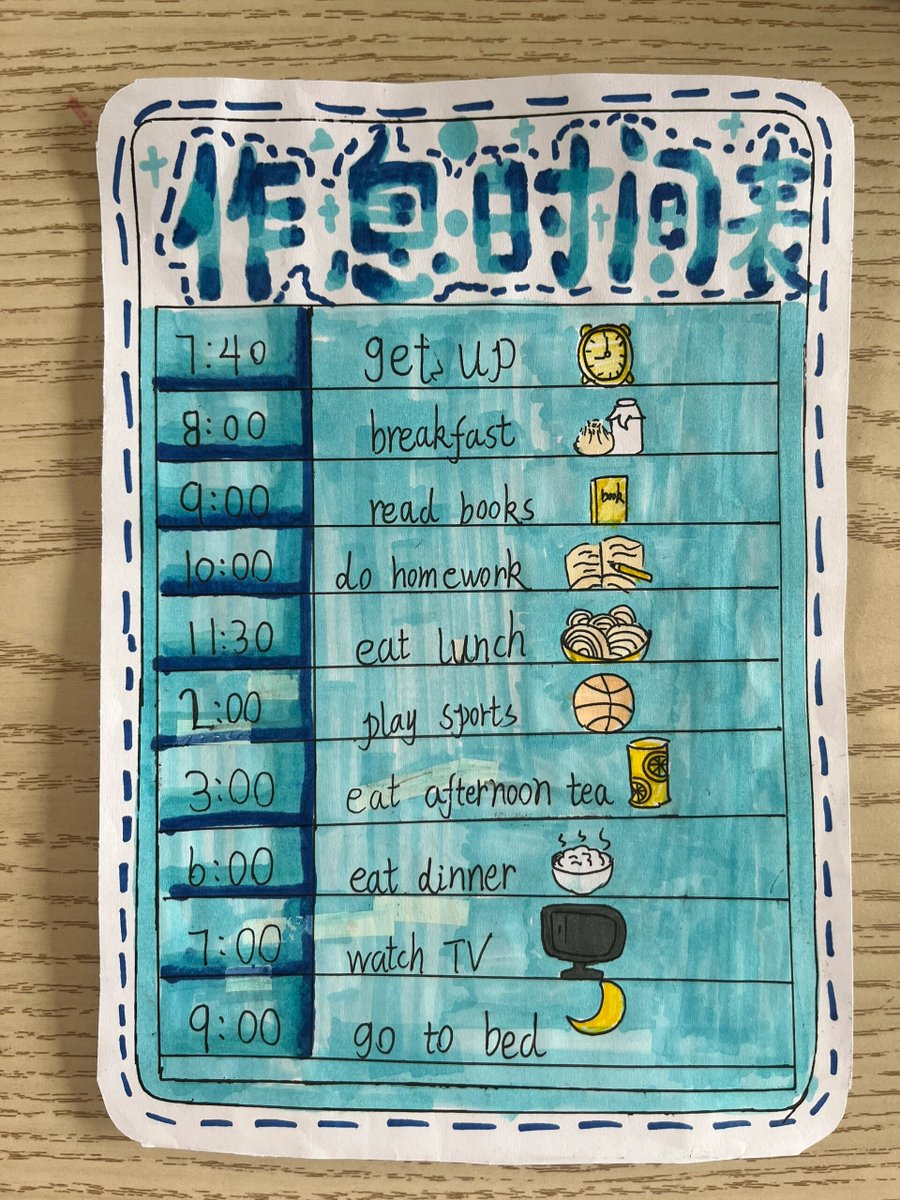 作息时间表
7:40 get up
8:00 breakfast
9:00 read books book
10:00 do homework
11:30 eat lunch
2:00 play sports
3:00 eat afternoon tea
6:00 eat dinner
7:00 watch TV
9:00 go to bed